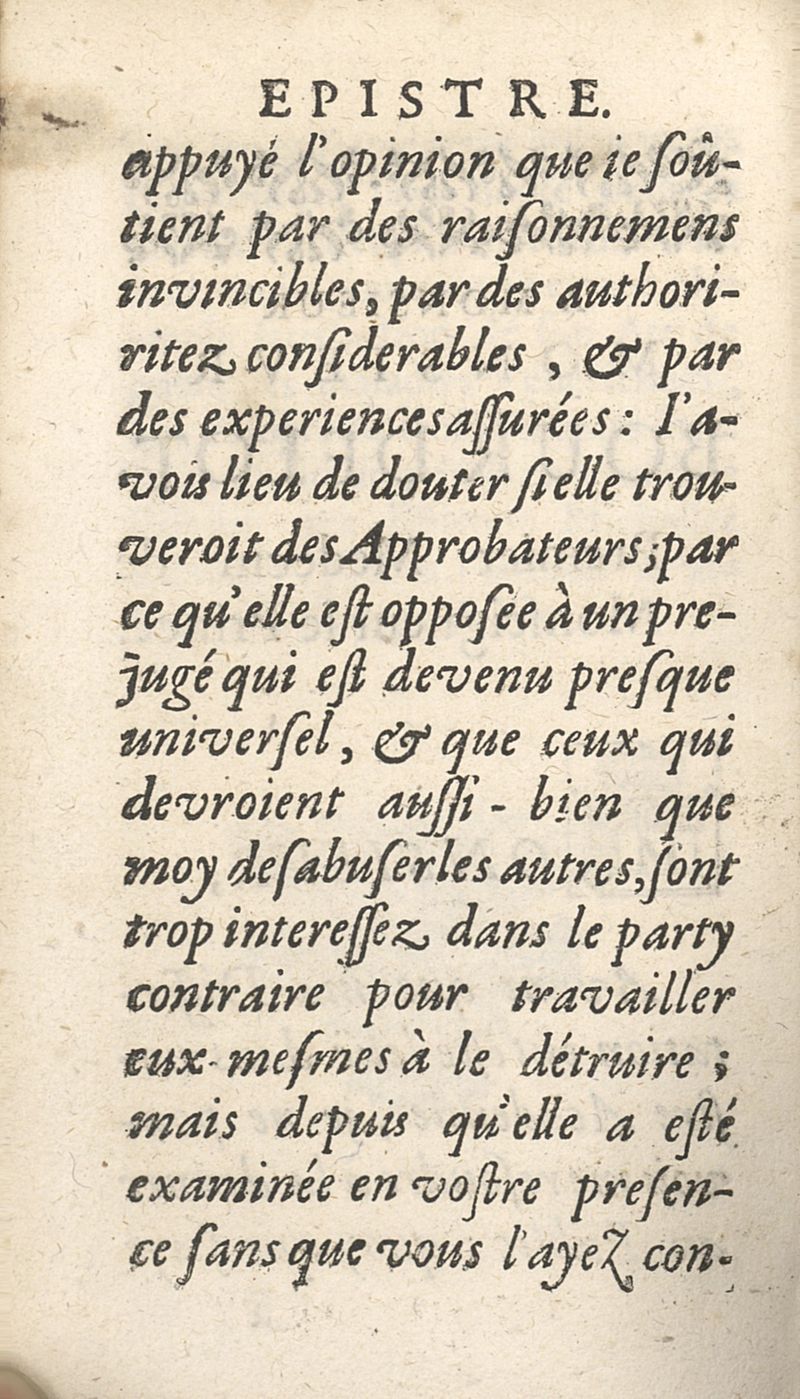 EPISTRE.
appuyé l'opinion que ie ſoû-
tient par des raiſonnemens
invincibles, par des authori-
ritez conſiderables , & par
des experiences aſſurées : I'a-
vois lieu de douter ſi elle trou-
veroit des Approbateurs ; par
ce qu'elle eſt opposée à un pre-
jugé qui eſt devenu preſque
univerſel, & que ceux qui
devroient auſſi - bien que
moy deſabuſer les autres, ſont
trop intereſſez dans le party
contraire pour travailler
eux-meſmes à le détruire ;
mais depuis qu'elle a eſté
examinée en voſtre preſen-
ce ſans que vous l'ayez con-